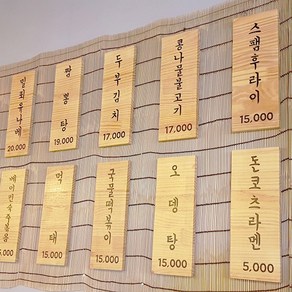 밀푀유나베
20,000
짬뽕탕
19,000
두부김치
17,000
콩나물불고기
17,000
스팸후라이
15,000
베이컨숙주볶음
5,000
먹태
15,000
국물떡볶이
15,000
오뎅탕
15,000
돈코츠라멘
5,000